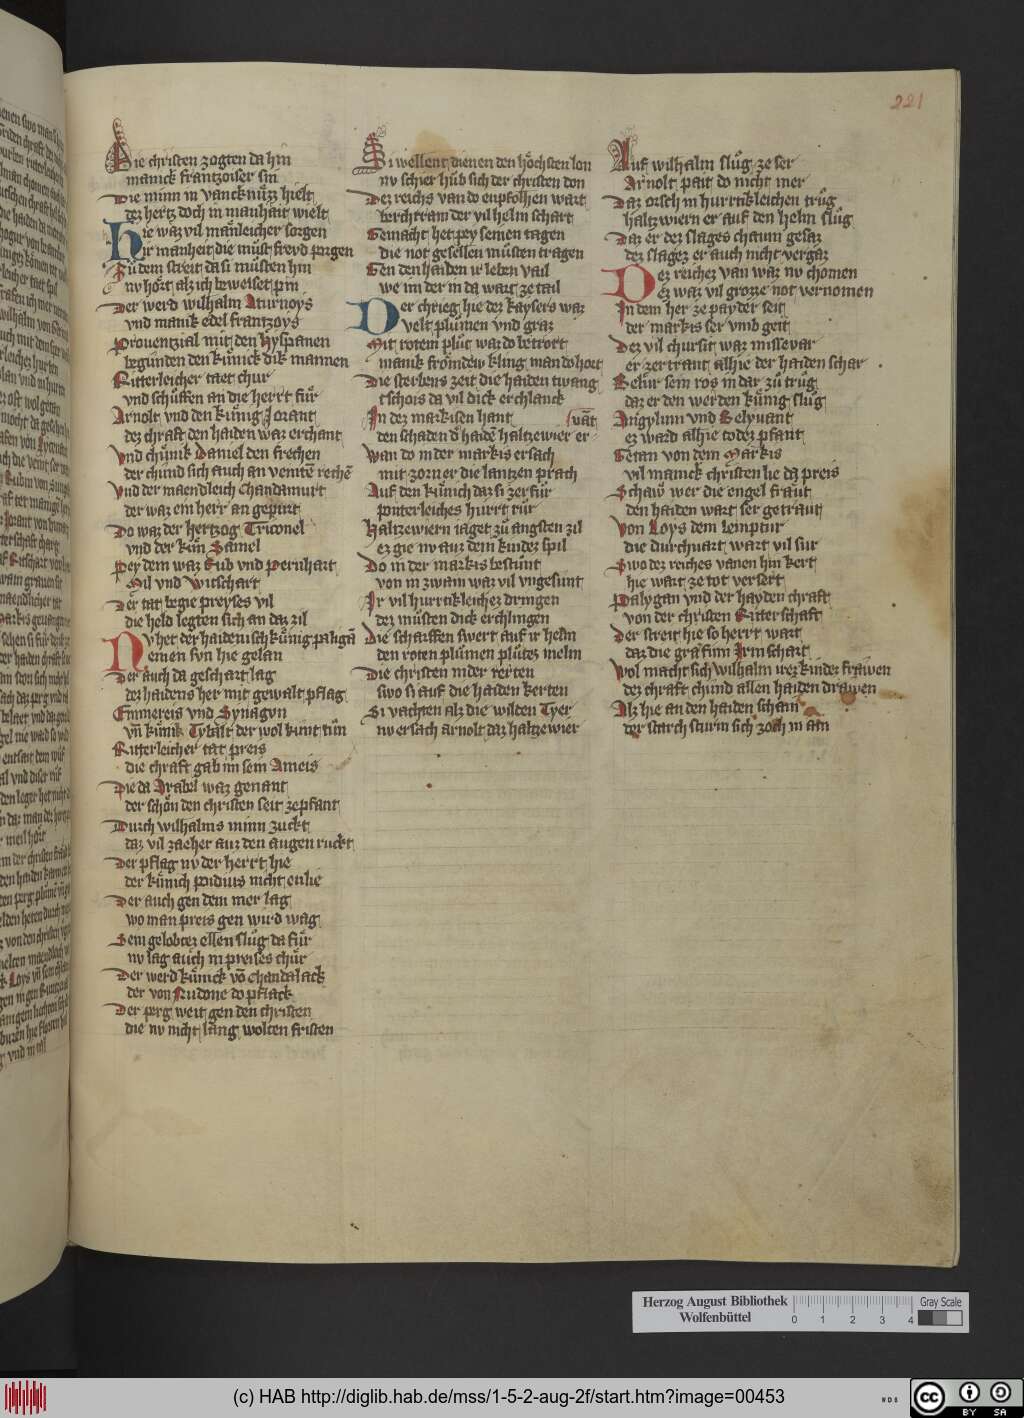 221
Die christen zogten da hin
manick frantzoiser sin
Die minn in vanck nutzz hielt
dez hertz doch in manhait wielt
Hie waz vil mänleicher sorgen
ir manheit die müst freyd porgen
Zü dem streit da si müsten hin
nv hört alz ich beweiset pin
Der werd wilhalm Aturnoys
vnd manik edel frantzoys
Prouentzial mit den hyspanen
begunden den künick dik mannen
Ritterleicher taet chur
vnd schüffen an die herrt für
Arnolt vnd den künig Jorant
dez chraft den haiden waz erchant
Vnd chünik Daniel den frechen
der chünd sich auch an venitē rechē
Vnd der maendleich Chandamurt
der waz ein herr an gepürt
Do waz der hertzog Triconel
vnd der kün Samel
Pey dem waz Gub vnd Pernhart
Mil vnd Witschart
Der tat begie preyses vil
die held legten sich an daz zil
Nv het der haidenisch künig paligā
Nemen svn hie gelan
Der auch da geschart lag
dez haidens her mit gewalt pflag
Emmereis vnd Synagvn
vn̄ künik Tybalt der wol kunt tün
Ritterleicher tat preis
die chraft gab im sein Ameis
Die da Arabel waz genant
der schön den christen seit ze pfant
Durch wilhalms minn zuckt
daz vil zaeher auz den augen ruckt
Der pflag nv der herrt hie
der künich poidius nicht enlie
Der auch gen dem mer lag
wo man preis gen wird wag
Sein gelobtez ellen slüg da für
nv lag auch in preises chür
Der werd künick vō Chandalack
der von Nudone do pflack
Der perg weit gen den christen
die nv nicht lang wolten fristen
Di wellent dienen den höchsten lon
nv schier hüb sich der christen don
Dez reichs van do enpfolhen wart
berchtram der vil helm schart
Gemacht het pey seinen tagen
die not gesellen müsten tragen
Gen den haiden ir leben vail
we im der in da wart ze tail
Der chrieg hie dez kaysers waz
velt plümen vnd graz
Mit rotem plüt waz do betrort
manik frömdew kling man do hort
Die sterbens zeit die haiden twang
tschois da vil dick erchlanck
In dez markisen hant
vāt
den schaden dō haidē haltzewier er
Wan do in der markis ersach
mit zorn er die lantzen prach
Auf den künich daz si zerfür
ponterleiches hurrt rür
Haltzewiern iaget zü angsten zil
ez gie nv auz dem kindez spil
Do in der markis bestünt
von in zwain waz vil vngesunt
Ir vil hurrtikleichez dringen
dez müsten dick erchlingen
Die scharffen swert auf ir helm
den roten plümen plütez melm
Die christen nider rerten
swo si auf die haiden kerten
Si vachten alz die wilden Tyer
nv ersach arnolt daz haltzewier
Auf wilhalm slüg ze ser
Arnolt pait do nicht mer
Daz orsch in hurrtikleichen trüg
haltzwiern er auf den helm slüg
Daz er dez slages chaum gesaz
dez slagez er auch nicht vergaz
Dez reichez van waz nv chomen
Ez waz vil grozze not vernomen
In dem her ze payder seit
der markis ser vmb geit
Dez vil chursit waz missevar
er zertrant alhie der haiden schar
Belür sein ros in dar zü trüg
daz er den werden künig slüg
Angylinn vnd Gelyuant
ez ward alhie todez pfant
Getan von dem Markis
vil manick christen lie dz preis
Schaw wer die engel fräut
den haiden wart ser getraut
Von Loys dem Lemptür
die durchuart wart vil sür
Swo dez reiches vanen hin kert
hie wart ze tot versert
Palygan vnd der hayden chraft
von der christen Ritterschaft
Der streit hie so herrt wart
daz die gräfinn Irmschart
Wol macht sich wilhalm irez kindez fräwen
dez chraft chund allen haiden dräwen
Alz hie an den haiden schain
der starch sturm sich zoch in ain
Herzog August Bibliothek
Wolfenbüttel
0 1 2 3 4
Gray Scale
(c) HAB http://diglib.hab.de/mss/1-5-2-aug-2f/start.htm?image=00453
WDB
cc BY SA